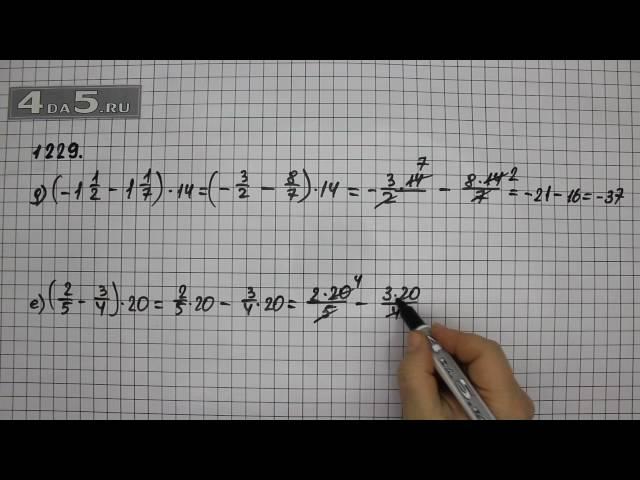 4DA5.RU
1229.
д) (-1 1/2 - 1 1/7) · 14 = (- 3/2 - 8/7) · 14 = - 3·14/2 7 - 8·14/7 2 = -21 - 16 = -37
е) (2/5 - 3/4) · 20 = 2/5 · 20 - 3/4 · 20 = 2·20/5 4 - 3·20/4